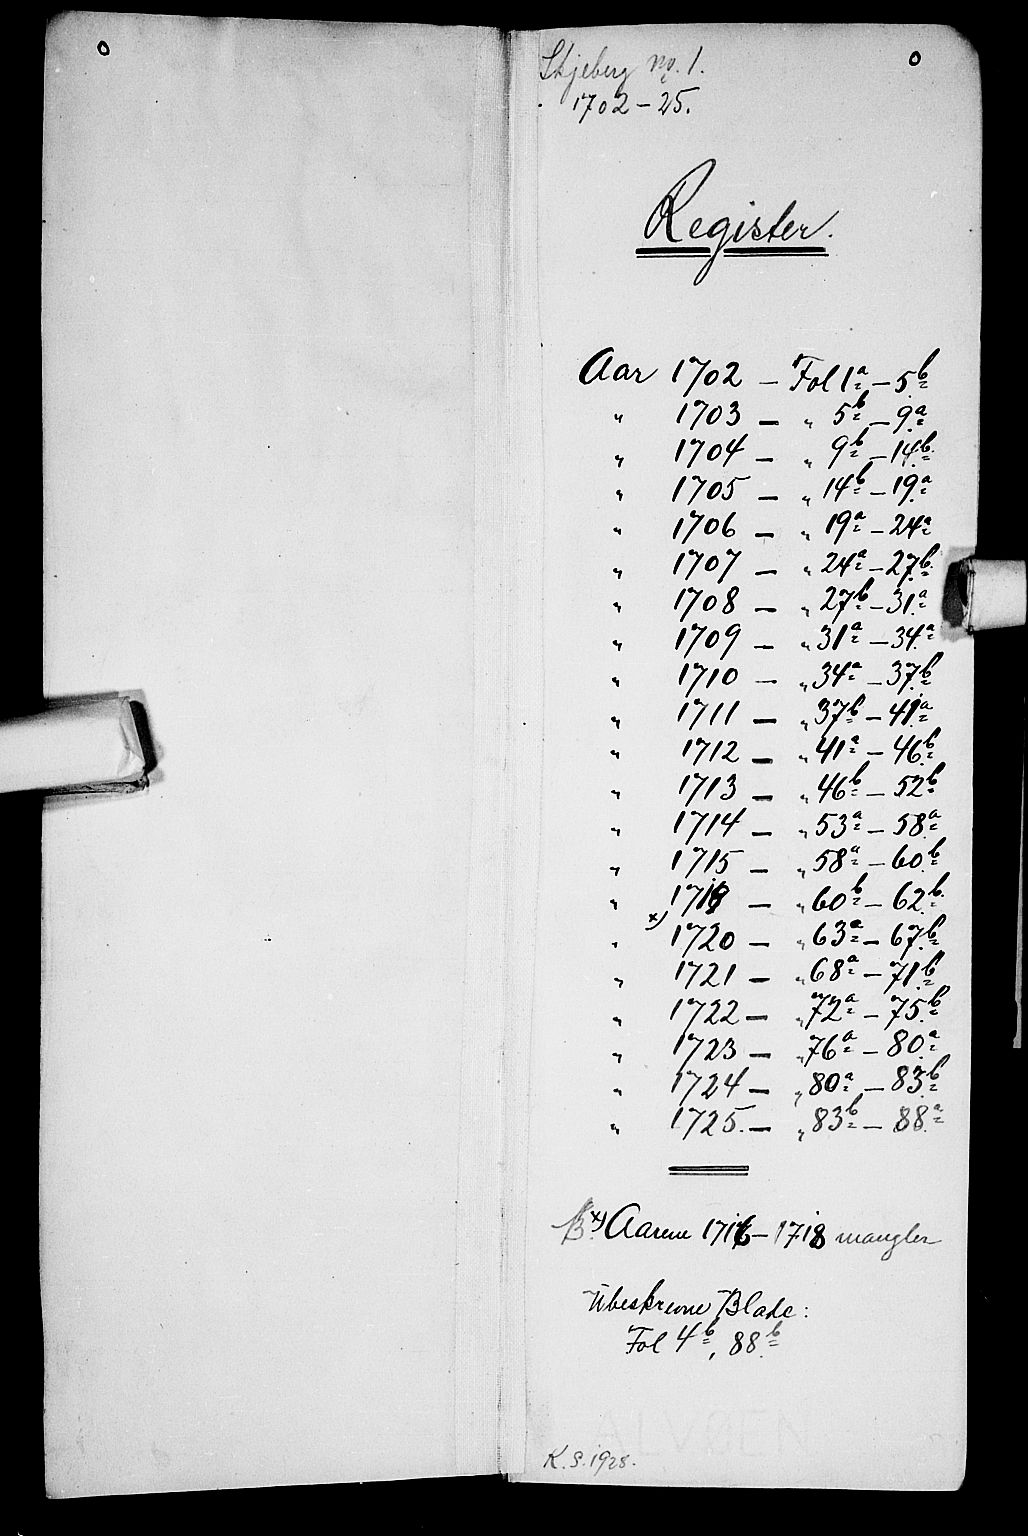 Skjeberg No. 1.
1702 – 25.
Register.
Aar 1702 — Fol 1a – 5b
" 1703 — " 5b – 9a
" 1704 — " 9b – 14b
" 1705 — " 14b – 19a
" 1706 — " 19a – 24a
" 1707 — " 24a – 27b
" 1708 — " 27b – 31a
" 1709 — " 31a – 34a
" 1710 — " 34a – 37b
" 1711 — " 37b – 41a
" 1712 — " 41a – 46b
" 1713 — " 46b – 52b
" 1714 — " 53a – 58a
" 1715 — " 58a – 60b
" 1719 — " 60b – 62b
" x) 1720 — " 63a – 67b
" 1721 — " 68a – 71b
" 1722 — " 72a – 75b
" 1723 — " 76a – 80a
" 1724 — " 80a – 83b
" 1725. — " 83b – 88a
x) Aarene 1716 – 1718 mangler
Ubeskrevne Blade:
Fol 4b, 88b
ALVØEN
K. S. 1928.